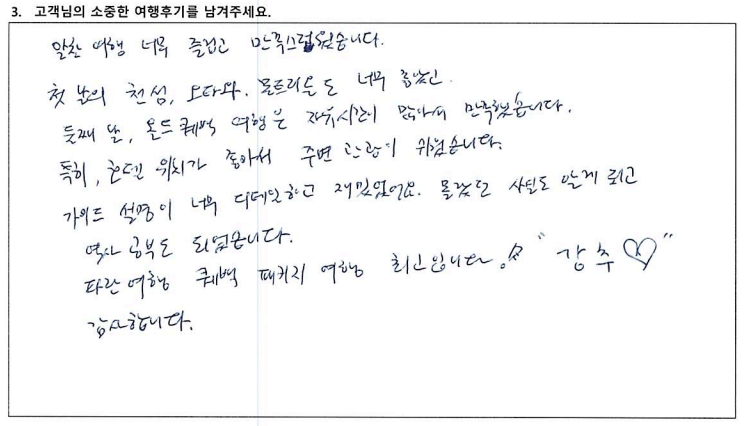 3. 고객님의 소중한 여행후기를 남겨주세요.
알찬 여행 너무 즐겁고 만족스러웠습니다.
첫 날의 천섬, 오타와, 몬트리올도 너무 좋았고
둘째 날, 올드퀘백 여행은 자유시간이 많아서 만족했습니다.
특히, 호텔 위치가 좋아서 주변 관광이 쉬웠습니다.
가이드 설명이 너무 디테일하고 재밌었어요. 몰랐던 사실도 알게 되고
역사 공부도 되었습니다.
파란여행 퀘백 패키지 여행 최고입니다. "강추♡"
감사합니다.